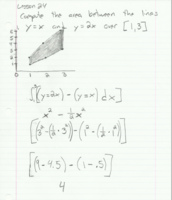 Lesson 24
Compute the area between the lines
y=x and y=2x over [1,3]
6
5
4
3
2
1
1 2 3
[∫(y=2x) - (y=x) dx]
x² - ½x²
[(3² - (½·3²)) - (1² - (½·1²))]
[(9-4.5) - (1-.5)]
4